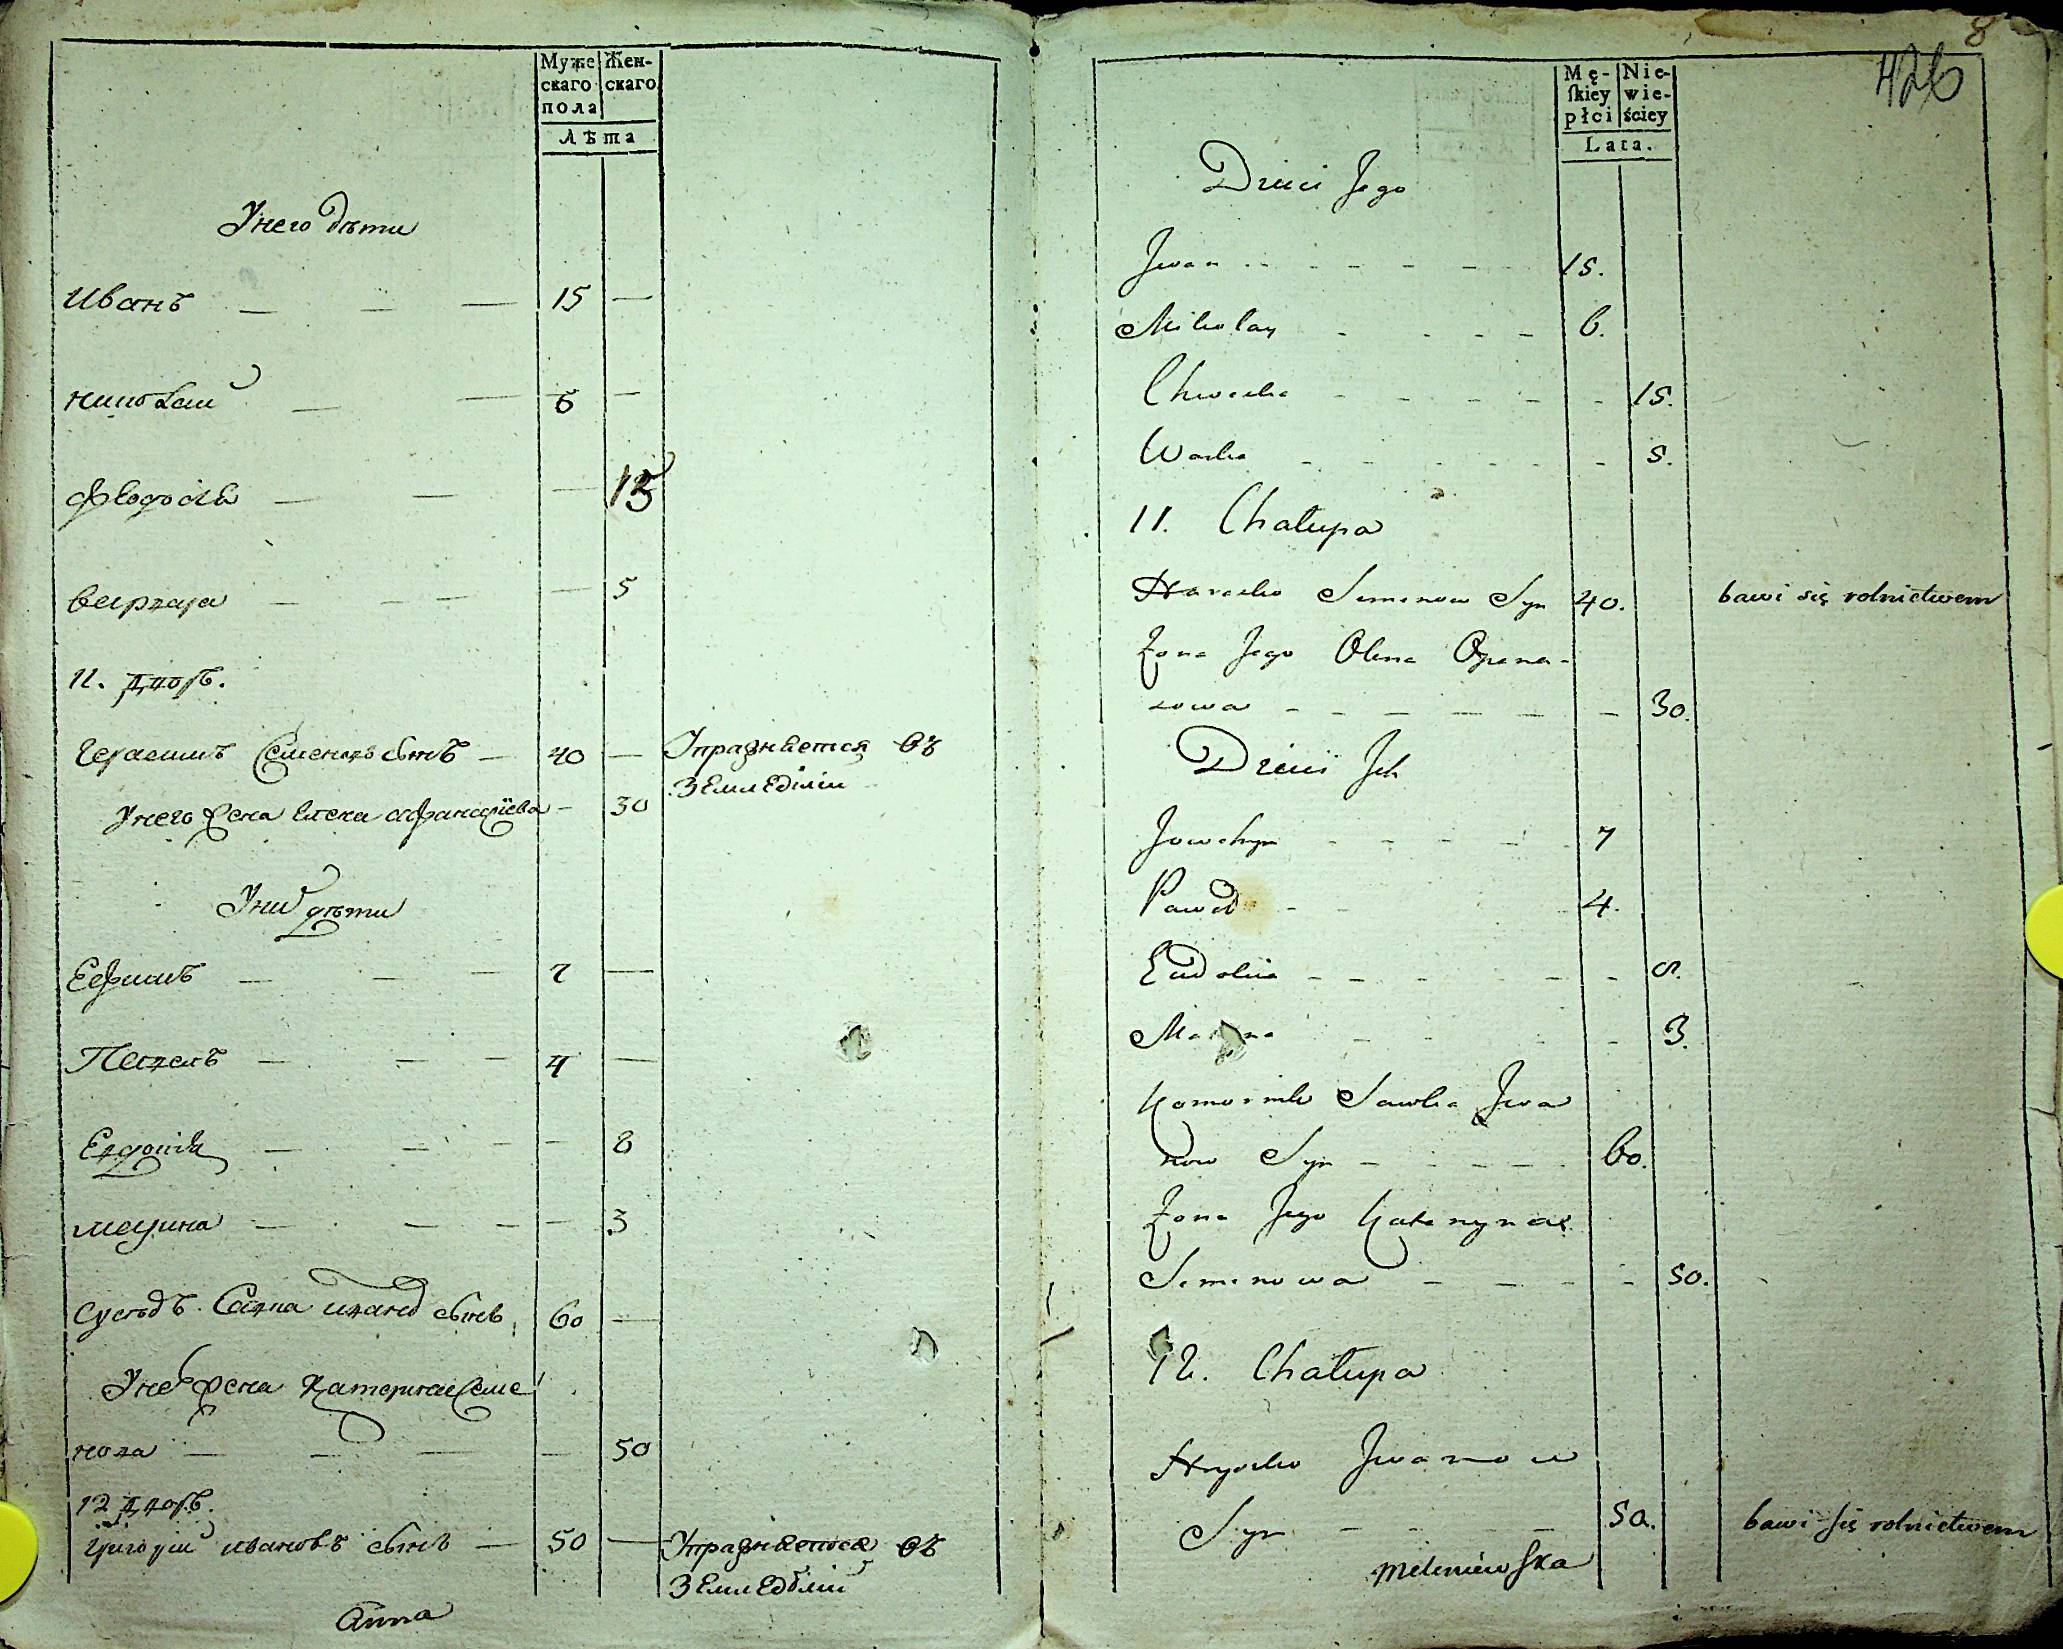 Муже
скаго
пола
Жен-
скаго
Лѣта
У него дѣти
Иванъ — — — 15 —
Николай — — 6 —
Феодосія — — — 15
Варвара — — — — 5
11. Дворъ.
Герасимъ Семеновъ сынъ — 40 — Упражняется въ
земледѣліи
У него жена Елена Афанасіева — 30
У них дѣти
Ефимъ — — — 7 —
Павелъ — — — 4 —
Евдокія — — — — 8
Марина — — — — 3
Сусѣдъ Савка Иванов сынъ 60 —
У нег жена Катерина Семе
нова — — — — 50
12 Дворъ.
Григорій Ивановъ сынъ — 50 — Упражняется въ
земледѣліи
Anna
8
426
Mę-
skiey
płci
Nie-
wie-
ściey
Lata.
Dzieci Jego
Jwan - - - - - - 15.
Mikołay - - - - - 6.
Chweska - - - - - - 15.
Warka - - - - - - - 5.
11. Chałupa
Harasko Semenow Syn 40. bawi się rolnictwem
Żona Jego Olena Opana-
sowa - - - - - - - 30.
Dzieci Jch
Jowchym - - - - - 7
Paweł - - - 4.
Eudokia - - - - - - 8.
Ma na - - - - - 3.
Komornik Sawka Jwa
now Syn - - - - - 60.
Żona Jego Kateryna
Semenowa - - - - - 50.
12. Chałupa
Hryćko Jwanow
Syn - - - - - 50. bawi się rolnictwem
Meleniewska